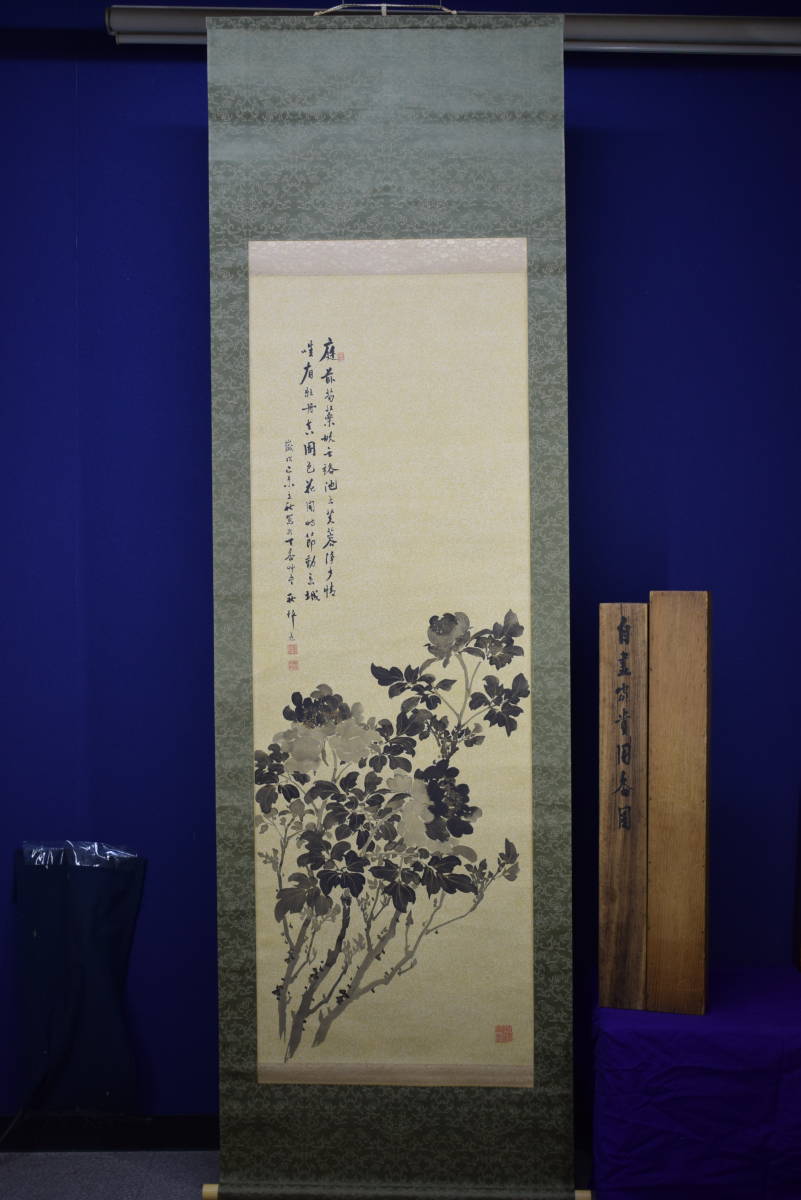 庭前芍薬妖無格池上芙蓉浄少情
唯有牡丹真国色花開時節動京城
歳次己未之秋寫於
自畫富貴国香図